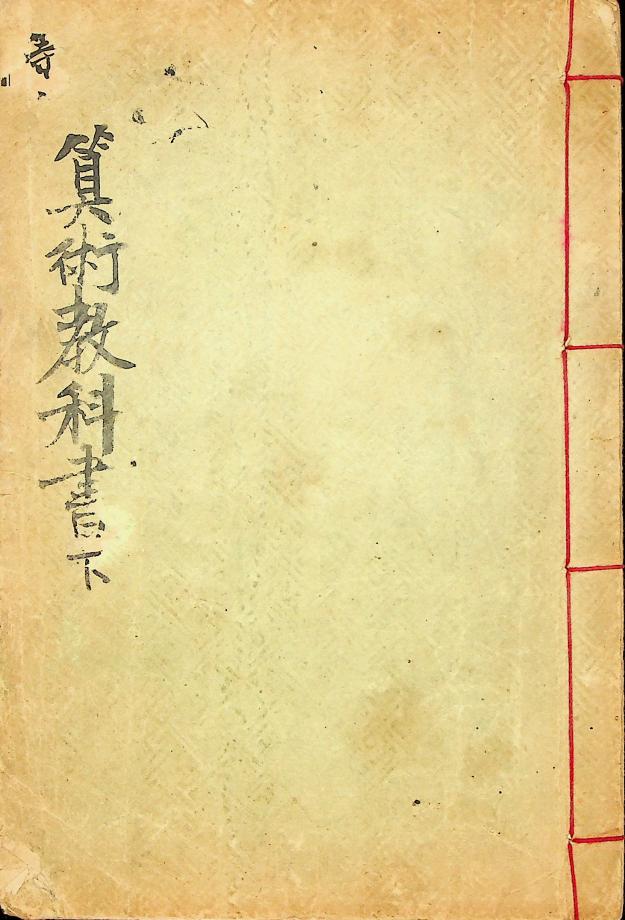 算術教科書下